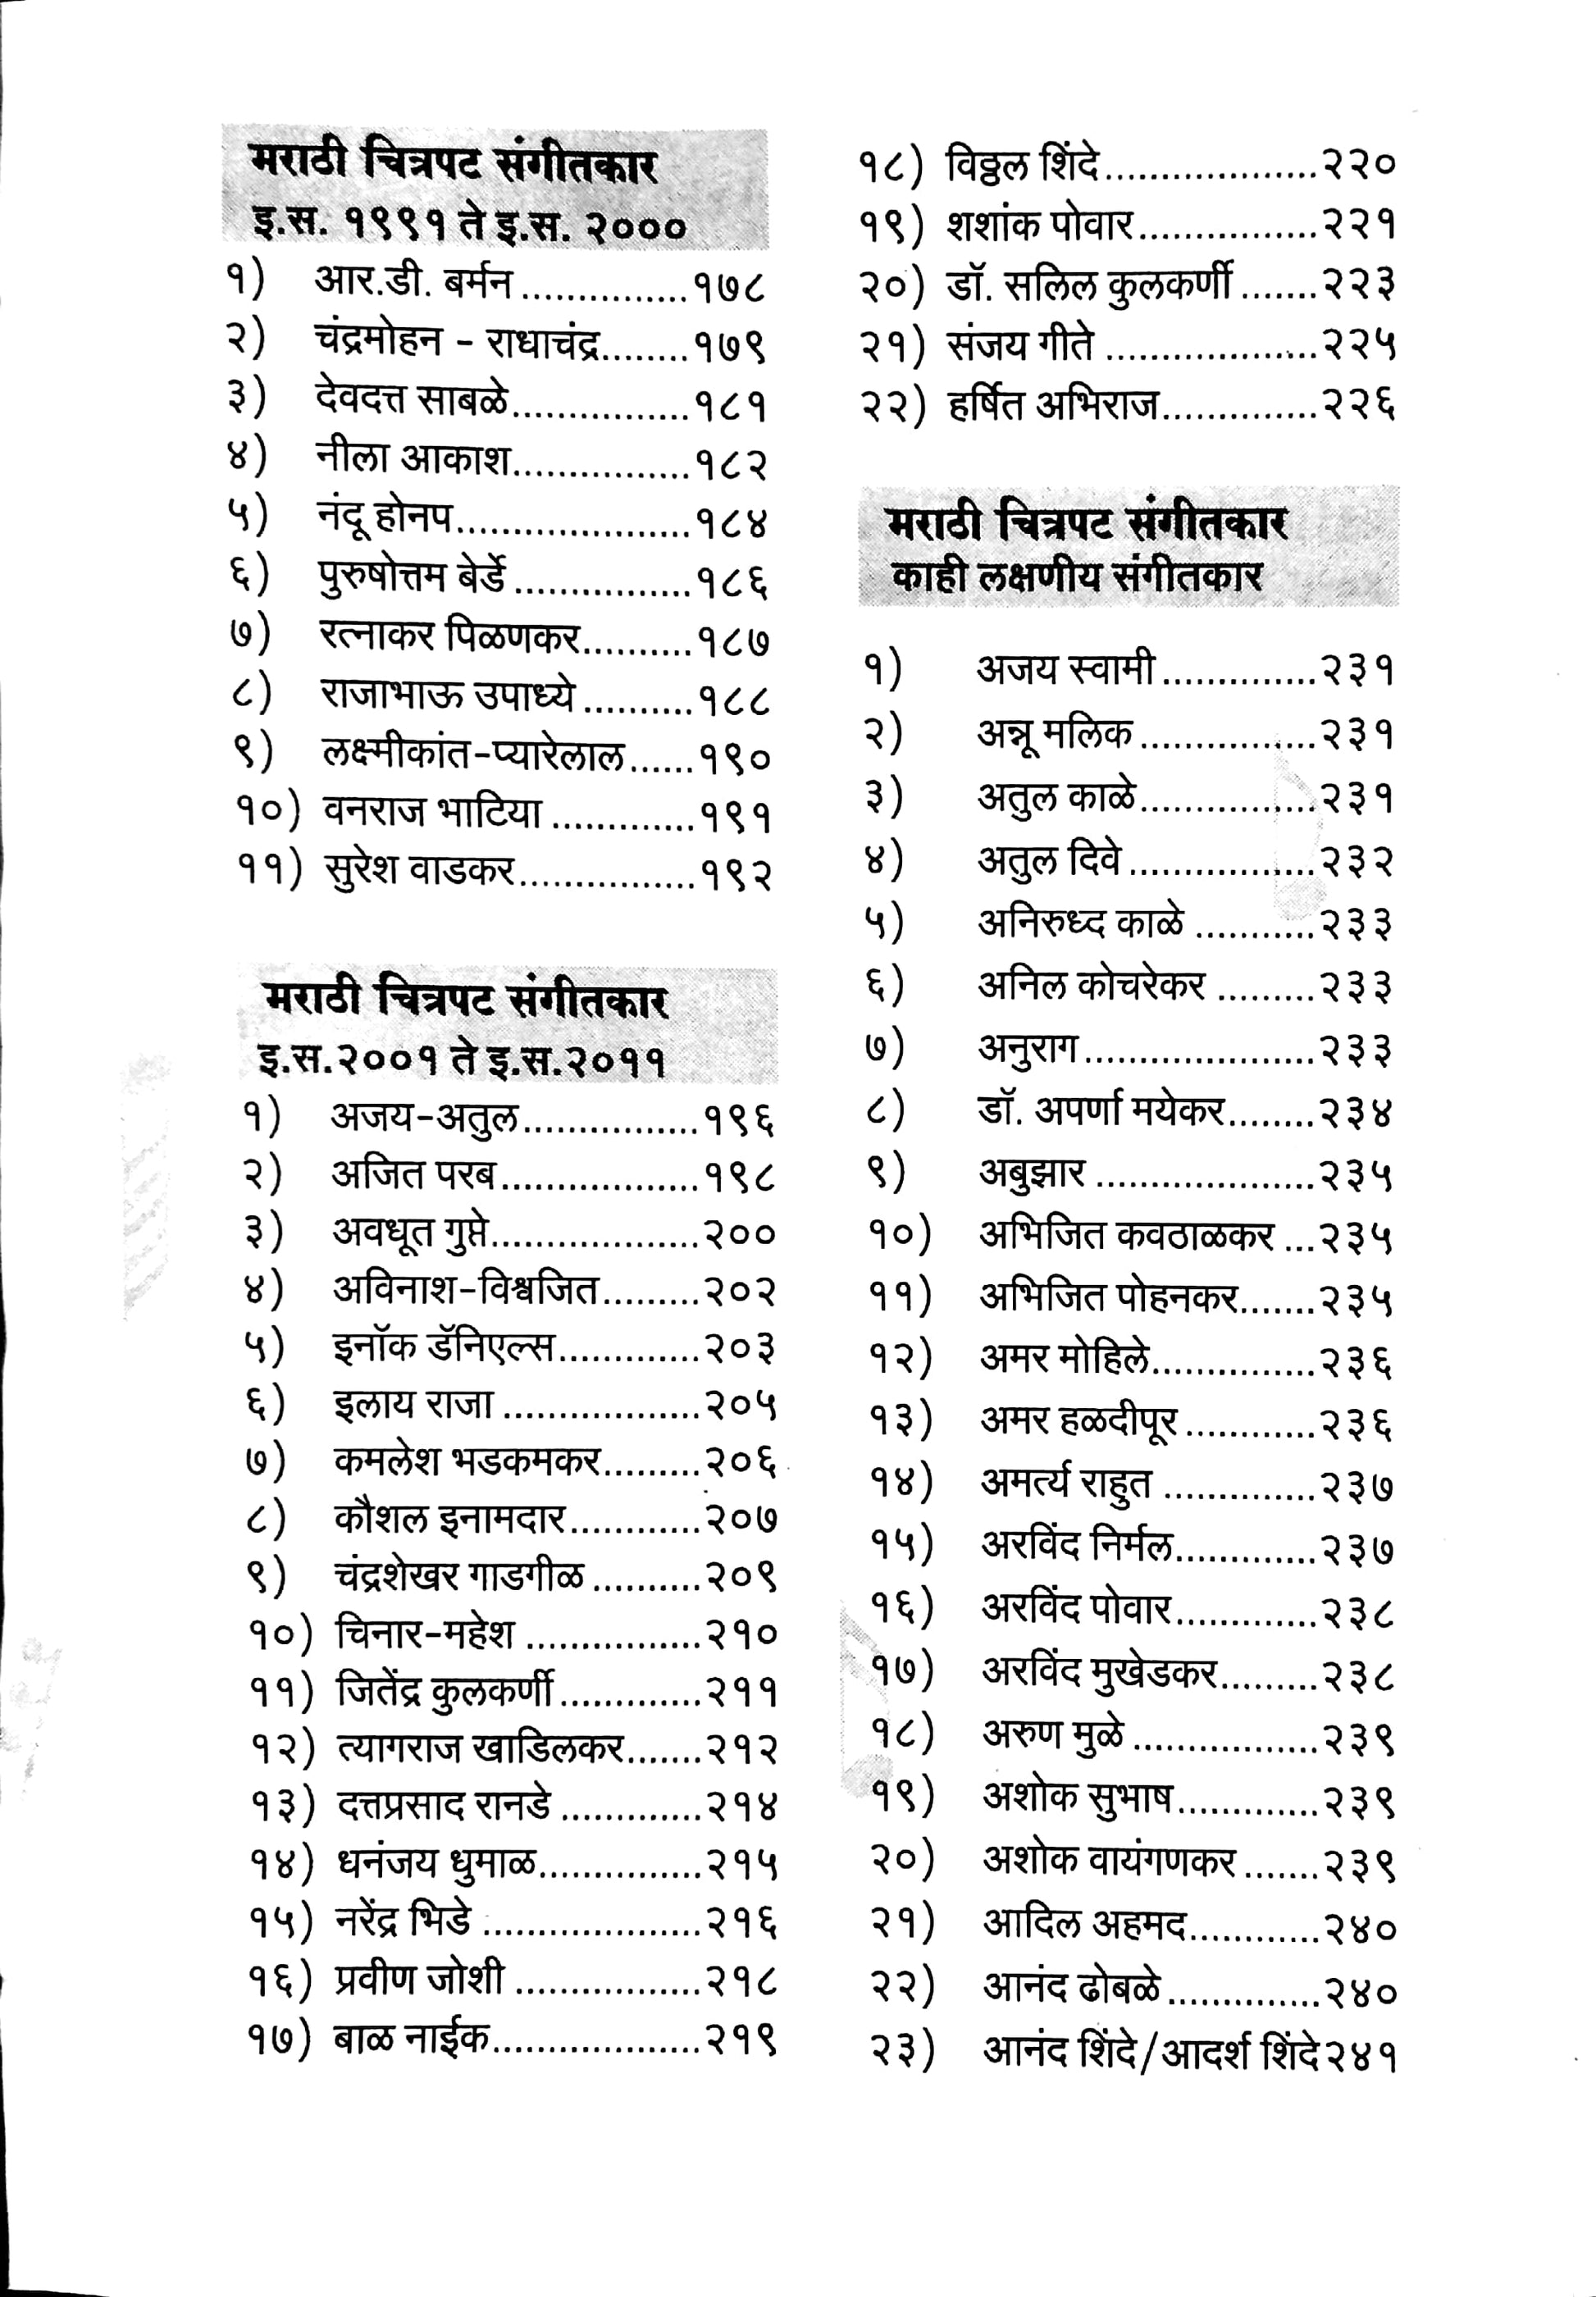 मराठी चित्रपट संगीतकार
इ.स. १९९१ ते इ.स. २०००
१) आर.डी. बर्मन................१७८
२) चंद्रमोहन - राधाचंद्र........१७९
३) देवदत्त साबळे................१८१
४) नीला आकाश................१८२
५) नंदू होनप.....................१८४
६) पुरुषोत्तम बेर्डे................१८६
७) रत्नाकर पिळणकर..........१८७
८) राजाभाऊ उपाध्ये..........१८८
९) लक्ष्मीकांत-प्यारेलाल......१९०
१०) वनराज भाटिया.............१९१
११) सुरेश वाडकर................१९२
मराठी चित्रपट संगीतकार
इ.स.२००१ ते इ.स.२०११
१) अजय-अतुल................१९६
२) अजित परब..................१९८
३) अवधूत गुप्ते...................२००
४) अविनाश-विश्वजित.........२०२
५) इनॉक डॅनिएल्स.............२०३
६) इलाय राजा..................२०५
७) कमलेश भडकमकर.........२०६
८) कौशल इनामदार............२०७
९) चंद्रशेखर गाडगीळ..........२०९
१०) चिनार-महेश................२१०
११) जितेंद्र कुलकर्णी.............२११
१२) त्यागराज खाडिलकर.......२१२
१३) दत्तप्रसाद रानडे.............२१४
१४) धनंजय धुमाळ...............२१५
१५) नरेंद्र भिडे....................२१६
१६) प्रवीण जोशी.................२१८
१७) बाळ नाईक...................२१९
१८) विठ्ठल शिंदे...................२२०
१९) शशांक पोवार................२२१
२०) डॉ. सलिल कुलकर्णी.......२२३
२१) संजय गीते...................२२५
२२) हर्षित अभिराज..............२२६
मराठी चित्रपट संगीतकार
काही लक्षणीय संगीतकार
१) अजय स्वामी..............२३१
२) अन्नू मलिक................२३१
३) अतुल काळे................२३१
४) अतुल दिवे.................२३२
५) अनिरुध्द काळे...........२३३
६) अनिल कोचरेकर.........२३३
७) अनुराग.....................२३३
८) डॉ. अपर्णा मयेकर........२३४
९) अबुझार....................२३५
१०) अभिजित कवठाळकर...२३५
११) अभिजित पोहनकर.......२३५
१२) अमर मोहिले...............२३६
१३) अमर हळदीपूर............२३६
१४) अमर्त्य राहुत..............२३७
१५) अरविंद निर्मल.............२३७
१६) अरविंद पोवार.............२३८
१७) अरविंद मुखेडकर.........२३८
१८) अरुण मुळे.................२३९
१९) अशोक सुभाष.............२३९
२०) अशोक वायंगणकर.......२३९
२१) आदिल अहमद............२४०
२२) आनंद ढोबळे..............२४०
२३) आनंद शिंदे/आदर्श शिंदे२४१